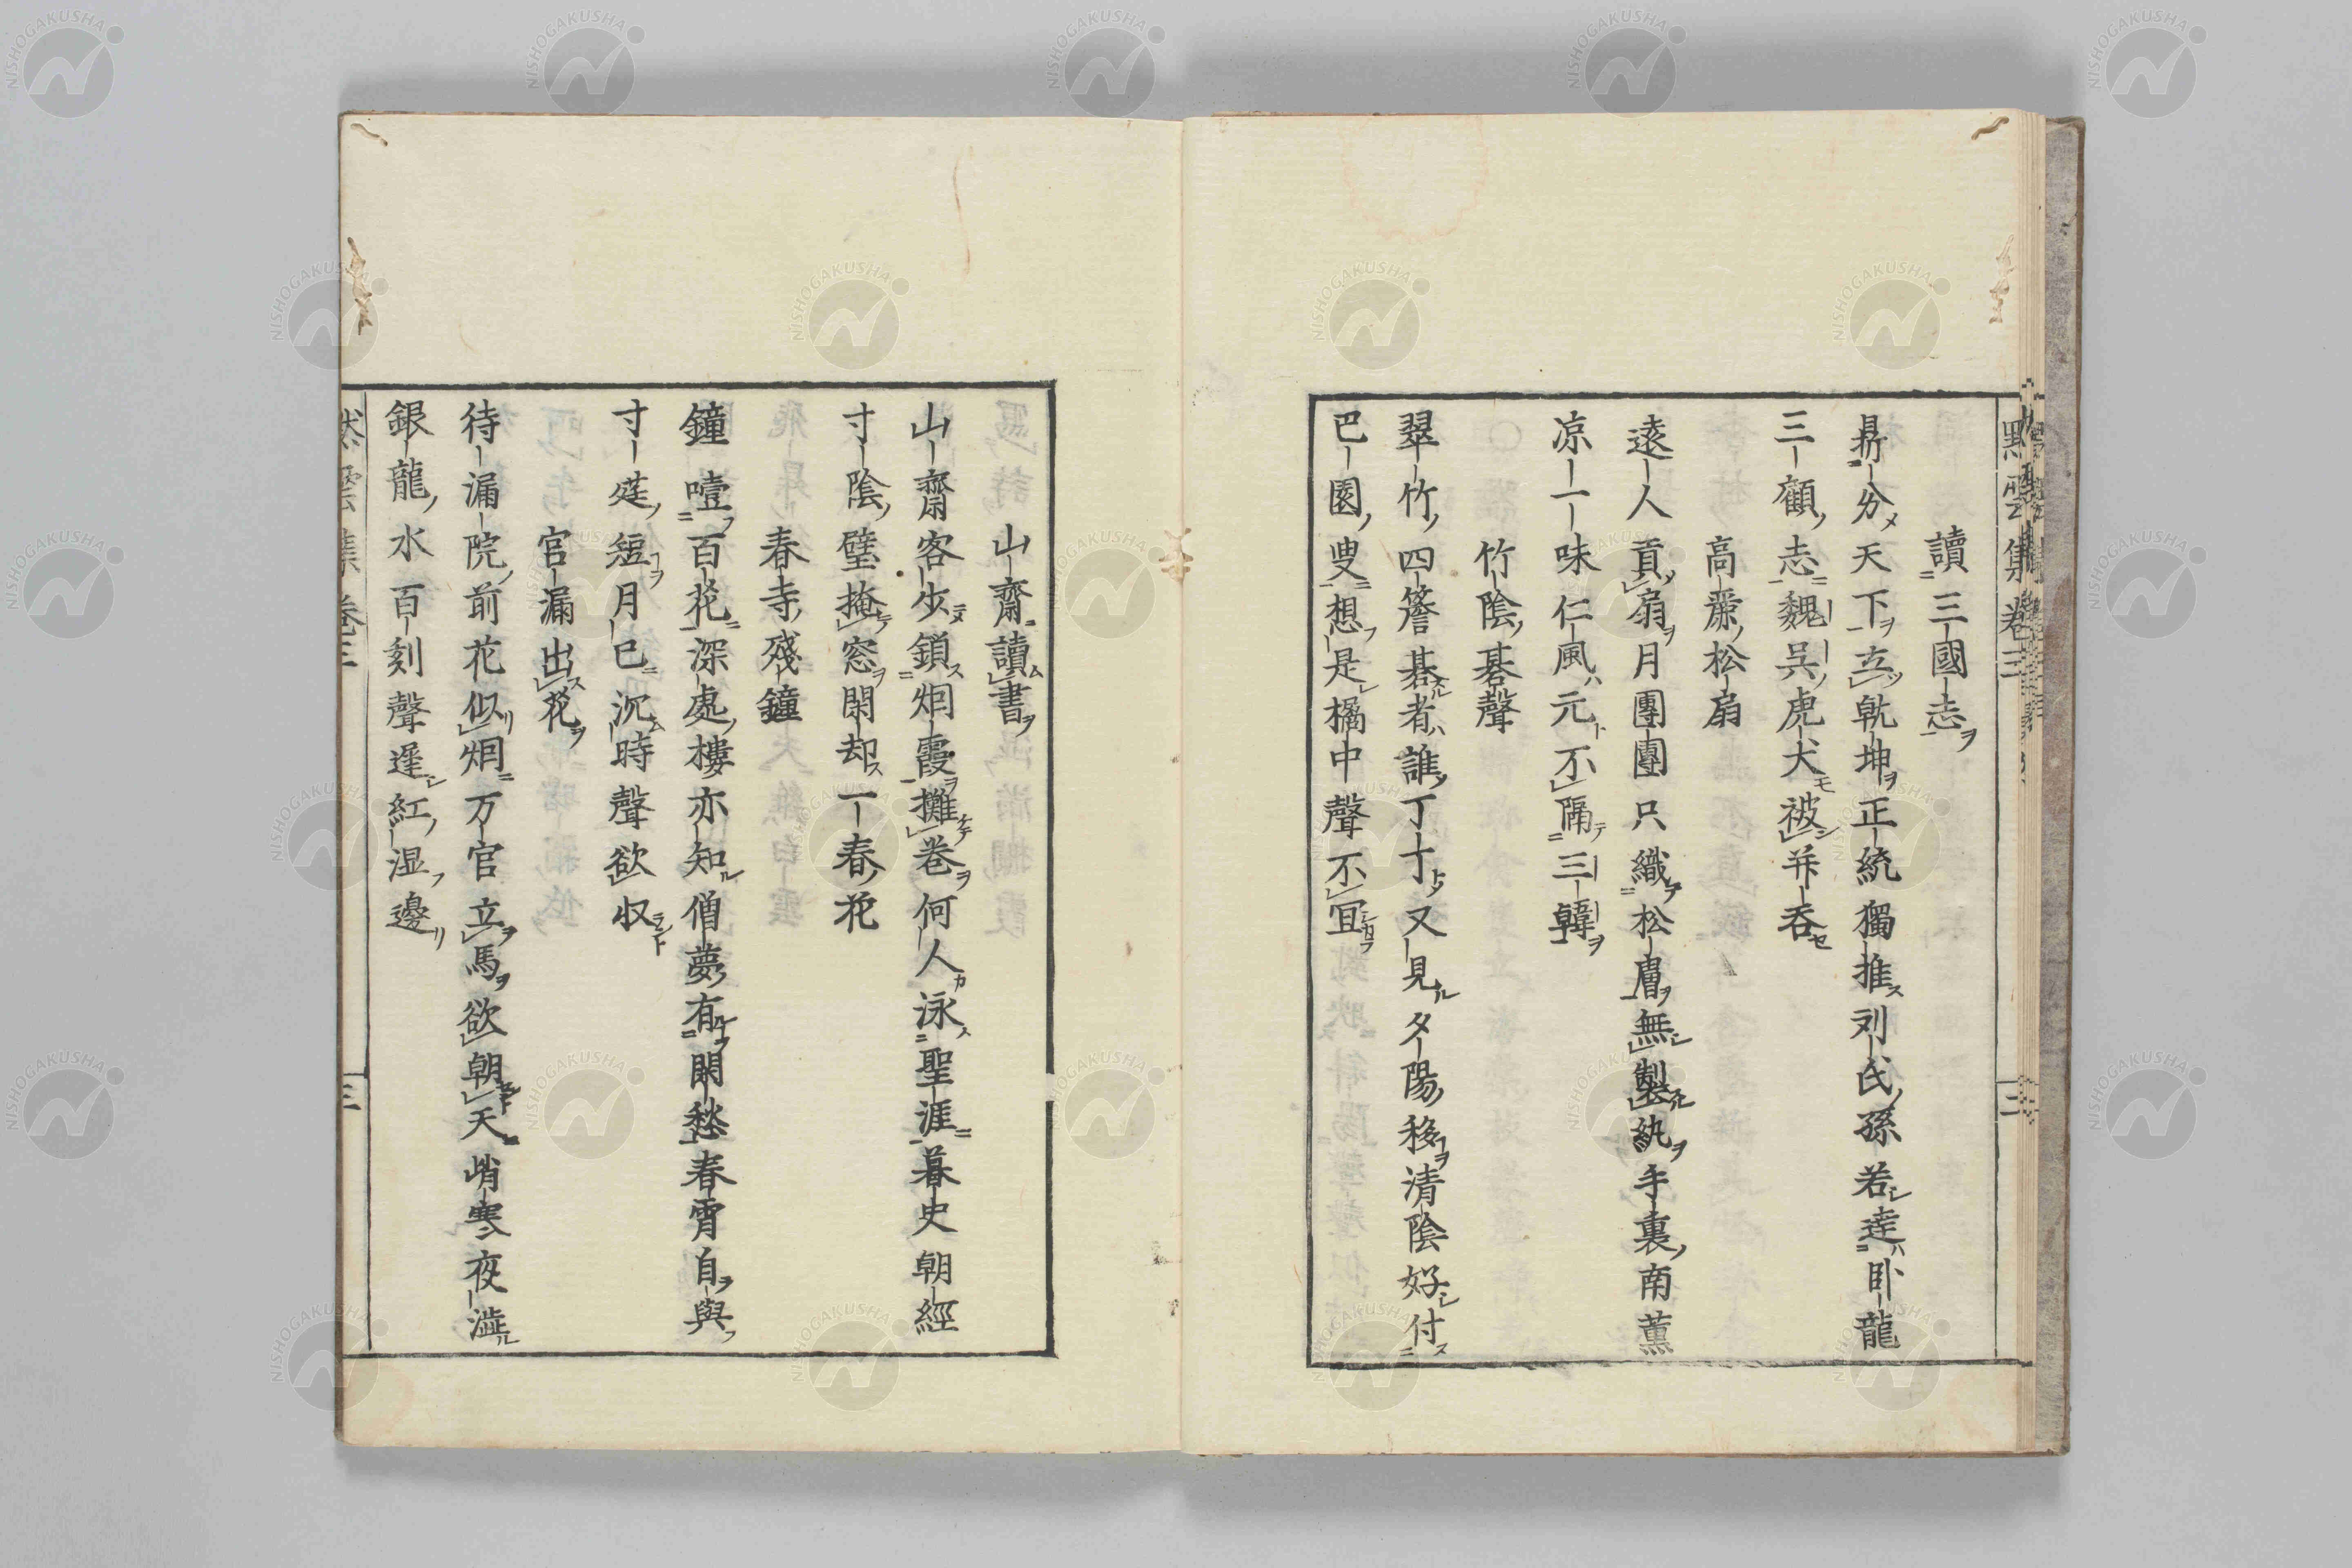 讀三國志
鼎分天下立乾坤正統獨推劉氏孫若逹臥龍
三顧志魏吳虎犬被并吞
高麗松扇
遠人貢扇月團團只織松膚無製紈手裏南薫
凉一味仁風元不隔三韓
竹陰碁聲
翠竹四簷碁者誰丁丁又見夕陽移清陰好付
巴園叟想是橘中聲不冝
山齋讀書
山齋客少鎖烟霞攤巻何人泳聖涯暮史朝經
寸陰壁掩窓閑却一春花
春寺殘鐘
鐘噎百花深處樓亦知僧夢有閑愁春霄自與
寸莚短月已沉時聲欲收
官漏出花
待漏院前花似烟万官立馬欲朝天峭寒夜澁
銀龍水百刻聲遲紅湿邊
默雲集巻三
三
NISHOGAKUSHA